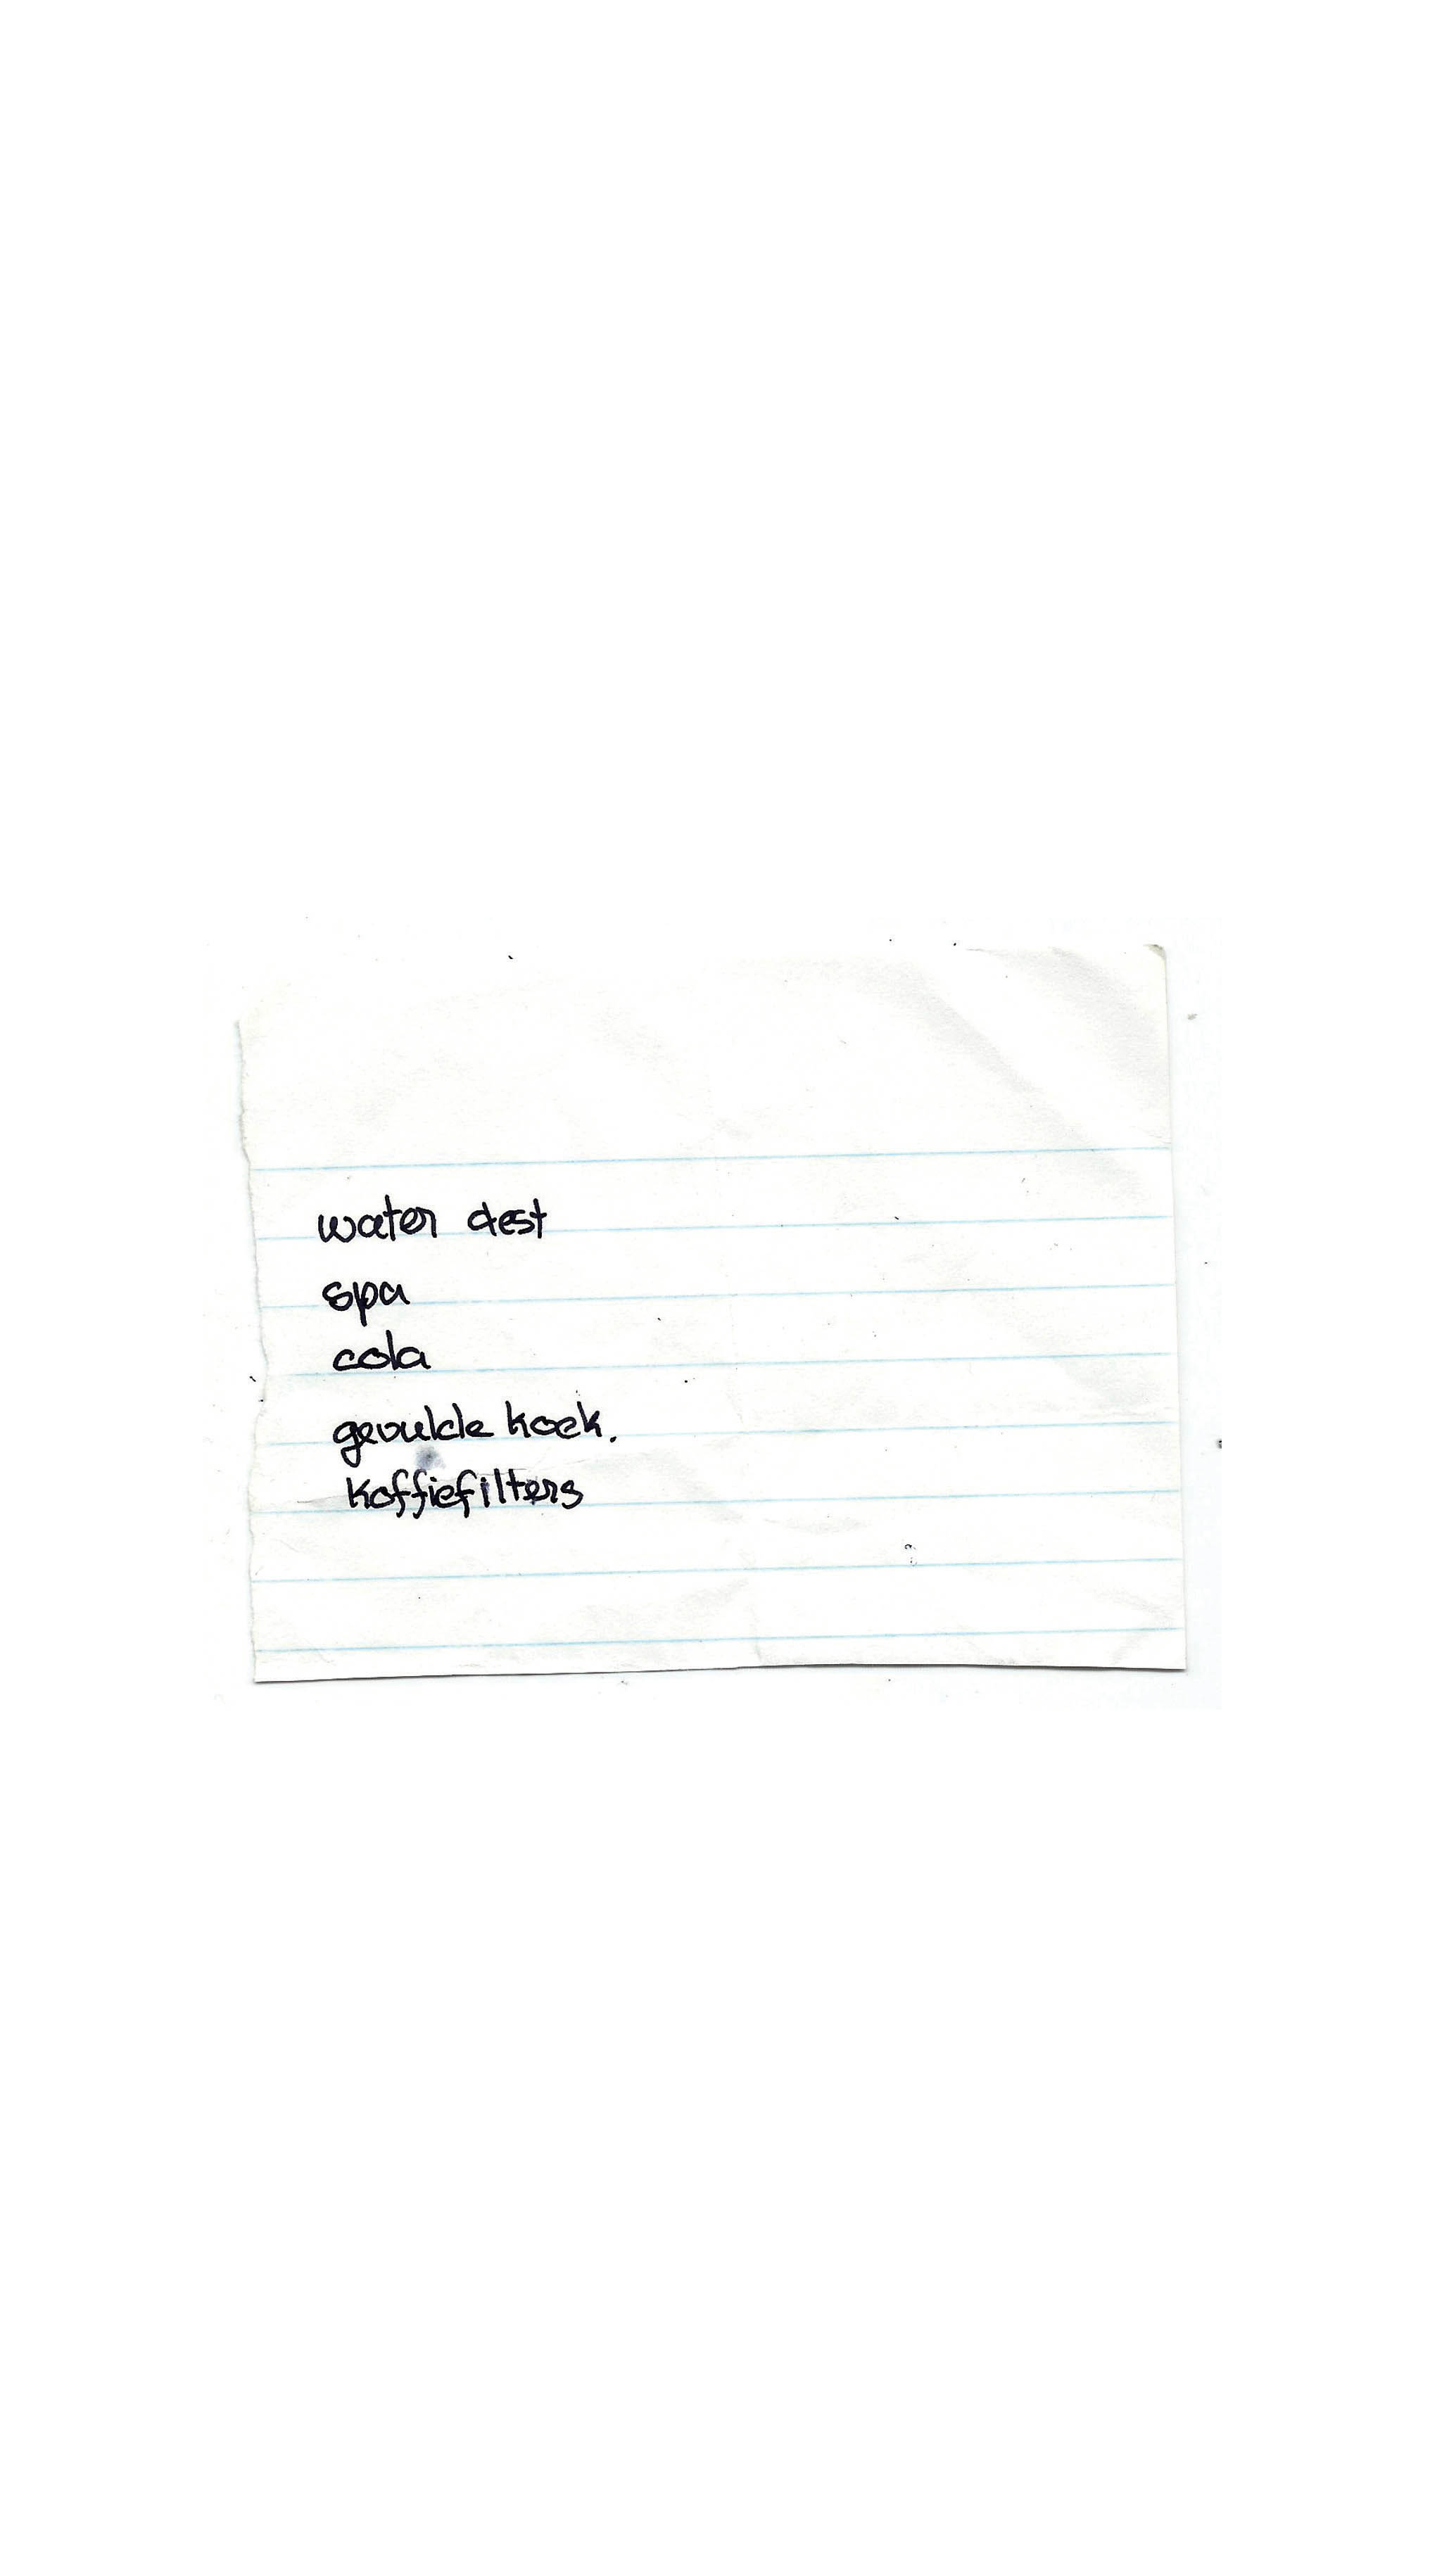 water dest
spa
cola
gevulde koek.
koffiefilters